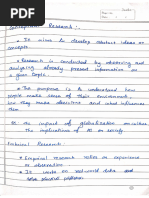 Conceptual Research :-
• It aims to develop abstract ideas or
concepts
• Research is conducted by observing and
analyzing already present information on
a given topic.
• The purpose is to understand how
people make sense of their environment,
how they make decisions and what influences
them
Ex. The impact of globalization on culture
The implications of AI on society
Empirical Research:
• Empirical research relies on experience
or observation
• It relies on real world data and